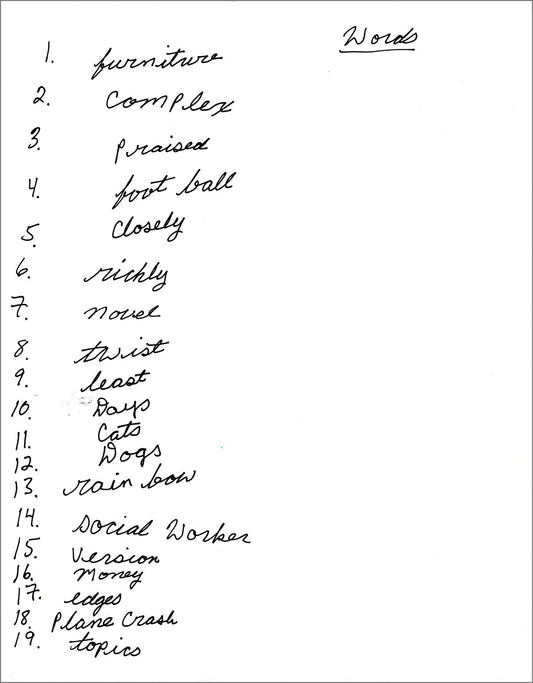 Words
1. furniture
2. Complex
3. praised
4. foot ball
5. Closely
6. richly
7. novel
8. twist
9. least
10. Days
11. Cats
12. Dogs
13. rain bow
14. social Worker
15. Version
16. Money
17. edges
18. Plane Crash
19. topics